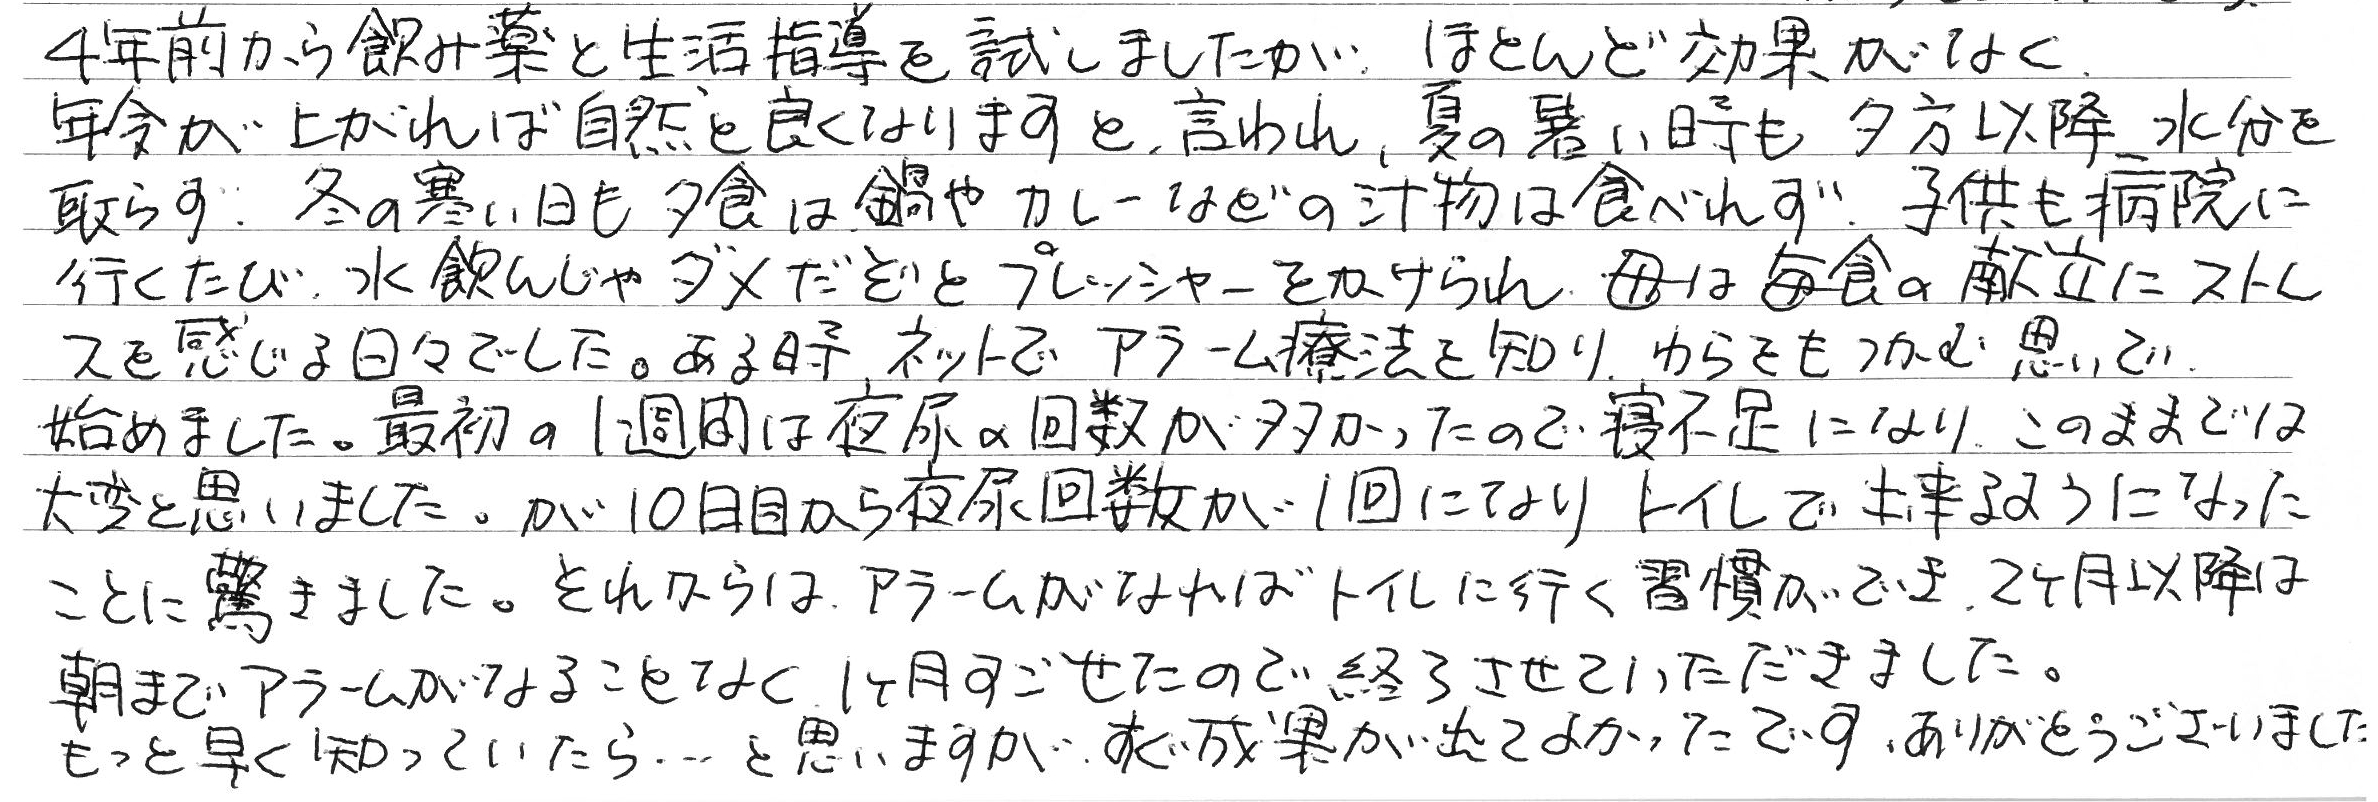 4年前から飲み薬と生活指導を試しましたが、ほとんど効果がなく、
年令が上がれば自然と良くなりますと、言われ、夏の暑い時も夕方以降、水分を
取らず、冬の寒い日も夕食は鍋やカレーなどの汁物は食べれず、子供も病院に
行くたび、水飲んじゃダメだぞとプレッシャーをかけられ、母は毎食の献立にストレ
スを感じる日々でした。ある時、ネットでアラーム療法を知り、わらをもつかむ思いで、
始めました。最初の1週間は夜尿の回数が多かったので寝不足になり、このままでは
大変と思いました。が10日目から夜尿回数が1回になりトイレで出来るようになった
ことに驚きました。それからは、アラームがなればトイレに行く習慣ができ、2ヶ月以降は
朝までアラームがなることなく、1ヶ月すごせたので終了させていただきました。
もっと早く知っていたら…と思いますが、すぐ成果が出てよかったです。ありがとうございました